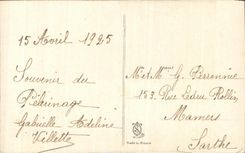 15 Avril 1925
Souvenir du
Pèlerinage
Gabrielle Adeline
Villette
M. et Mme G. Perronnie
153 Rue Ledru Rollin
Mamers
Sarthe